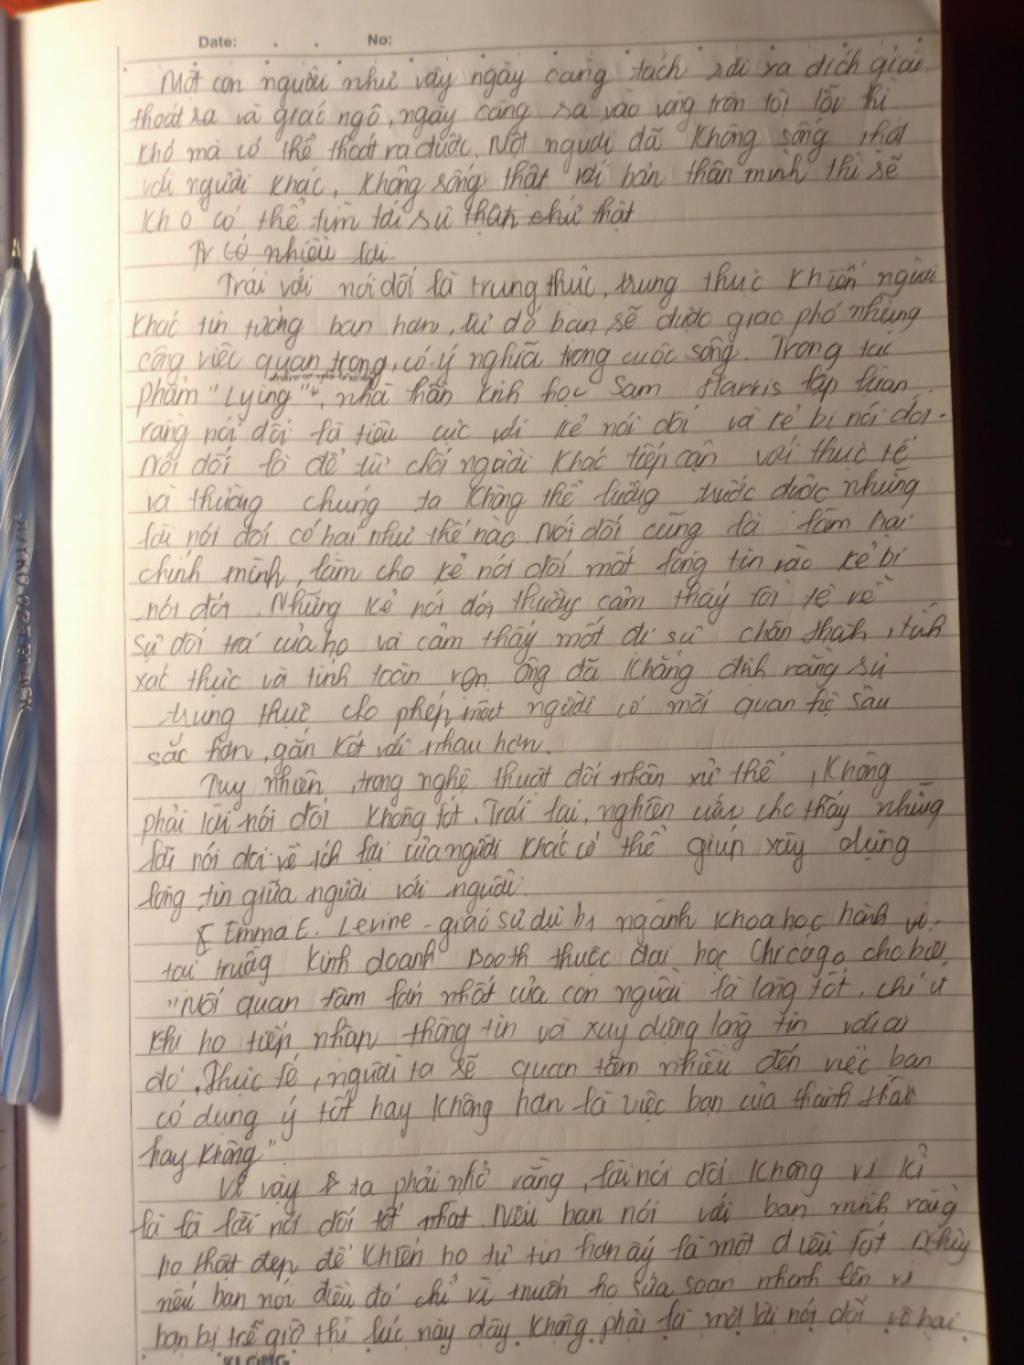 Date: . . No:
Một con người như vậy ngày càng tách rời xa đích giải
thoát ra và giác ngộ, ngày càng sa vào vòng tròn tội lỗi thì
khó mà có thể thoát ra được. Một người đã không sống thật
với người khác, không sống thật với bản thân mình thì sẽ
khó có thể tìm tới sự thật chứ thật
Tr có nhiều lợi
Trái với nói dối là trung thực, trung thực khiến người
khác tin tưởng bạn hơn, từ đó bạn sẽ được giao phó những
công việc quan trọng, có ý nghĩa trong cuộc sống. Trong tác
phẩm "Lying", nhà thần kinh học Sam Harris lập luận
rằng nói dối là tiêu cực với kẻ nói dối và kẻ bị nói dối.
Nói dối là để từ chối người khác tiếp cận với thực tế
và thường chúng ta không thể lường trước được những
lời nói dối có hại như thế nào. Nói dối cũng là làm hại
chính mình, làm cho kẻ nói dối mất lòng tin vào kẻ bị
nói dối. Những kẻ nói dối thường cảm thấy tồi tệ về
sự dối trá của họ và cảm thấy mất đi sự chân thành, tính
xác thực và tính toàn vẹn. Ông đã khẳng định rằng sự
trung thực cho phép một người có mối quan hệ sâu
sắc hơn, gắn kết với nhau hơn.
Tuy nhiên, trong nghệ thuật đối nhân xử thế, không
phải lời nói dối không tốt. Trái lại, nghiên cứu cho thấy những
lời nói dối về ích lợi của người khác có thể giúp xây dựng
lòng tin giữa người với người.
Emma E. Levine - giáo sư dự bị ngành khoa học hành vi
tại trường kinh doanh Booth thuộc đại học Chicago cho biết,
"Mối quan tâm lớn nhất của con người là lòng tốt, chỉ ư
khi họ tiếp nhận thông tin và xây dựng lòng tin với ai
đó. Thực tế, người ta sẽ quan tâm nhiều đến việc bạn
có dụng ý tốt hay không hơn là việc bạn của thành thật
hay không".
Vì vậy ta phải nhớ rằng, lời nói dối không vị kỉ
là là lời nói dối tốt nhất. Nếu bạn nói với bạn mình rằng
họ thật đẹp để khiến họ tự tin hơn ấy là một điều tốt. Nhưng
nếu bạn nói điều đó chỉ vì muốn họ sửa soạn nhanh lên vì
bạn bị trễ giờ thì lúc này đây không phải là một lời nói dối vô hại.
KLONG